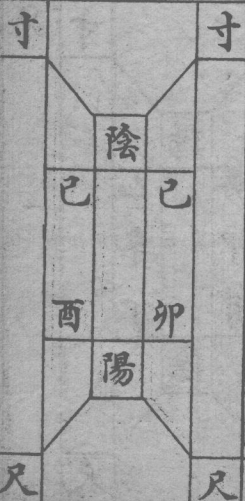 寸 寸
陰
已 已
酉 卯
陽
尺 尺